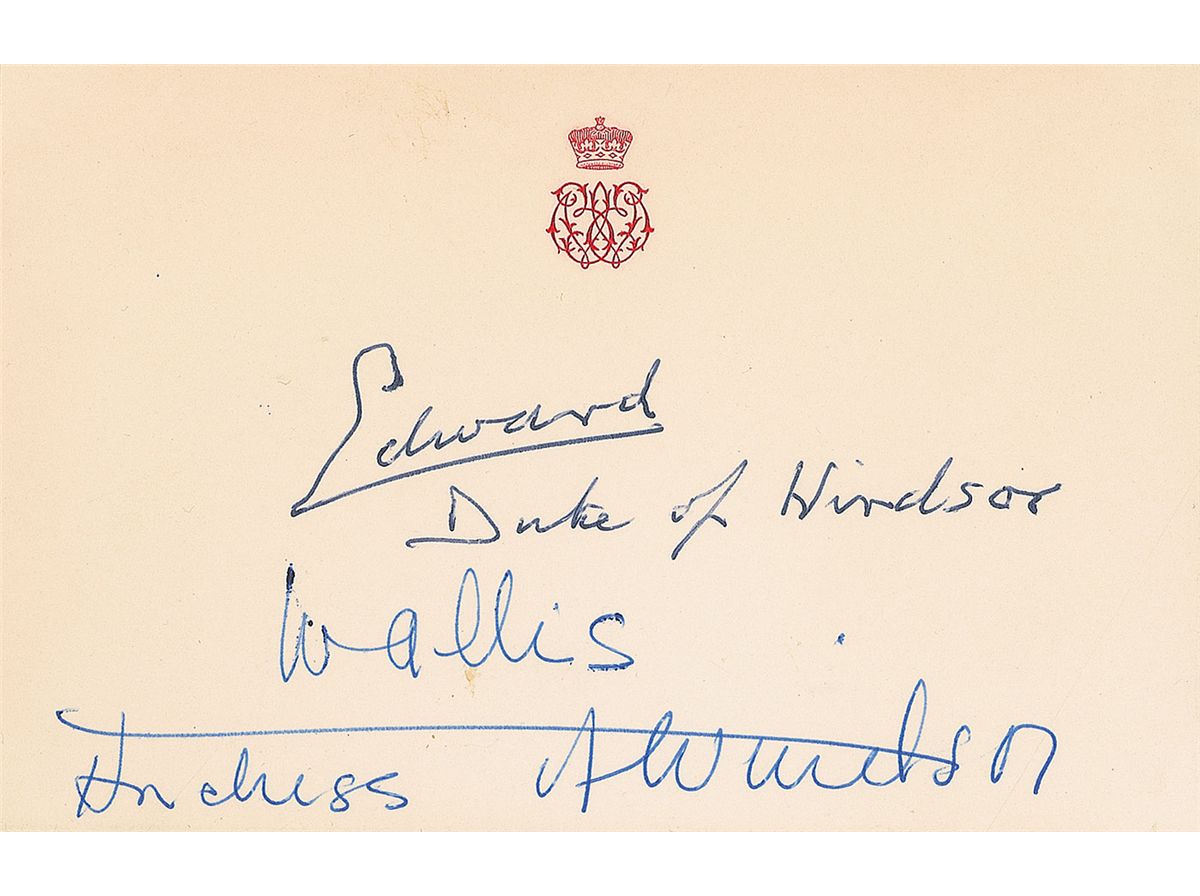 Edward
Duke of Windsor
Wallis
Duchess of Windsor